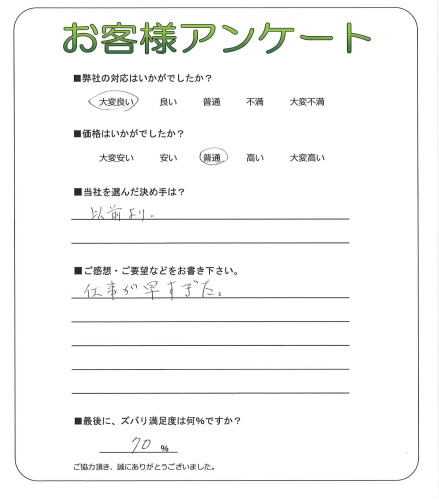 お客様アンケート
■弊社の対応はいかがでしたか？
大変良い 良い 普通 不満 大変不満
■価格はいかがでしたか？
大変安い 安い 普通 高い 大変高い
■当社を選んだ決め手は？
以前より。
■ご感想・ご要望などをお書き下さい。
仕事が早すぎた。
■最後に、ズバリ満足度は何%ですか？
70 %
ご協力頂き、誠にありがとうございました。